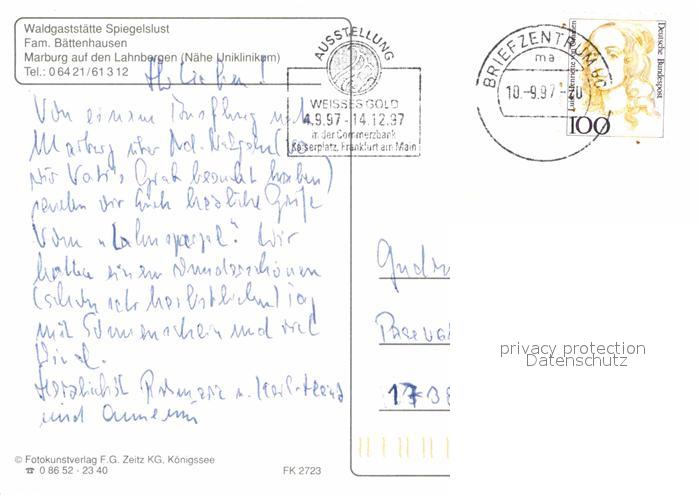 Waldgaststätte Spiegelslust
Fam. Bättenhausen
Marburg auf den Lahnbergen (Nähe Uniklinikum)
Tel.: 0 64 21 / 61 3 12
Ihr Lieben!
Von einem Ausflug nach
Marburg über Bad
wir Vati's Grab besucht haben)
senden wir Euch herzliche Grüße
Vom "Lahnspiegel". Wir
hatten einen wunderschönen
(schon sehr herbstlichen) Tag
mit Sonnenschein und viel
Wind.
Herzlichst Rosmarie u. Karl-Heinz
und
© Fotokunstverlag F.G. Zeitz KG, Königssee
☎ 0 86 52 - 23 40
FK 2723
AUSSTELLUNG
WEISSES GOLD
4.9.97 - 14.12.97
in der Commerzbank
Kaiserplatz, Frankfurt am Main
BRIEFZENTRUM 60
ma
10.-9.97-20
Deutsche Bundespost
100
Gudru
17
privacy protection
Datenschutz